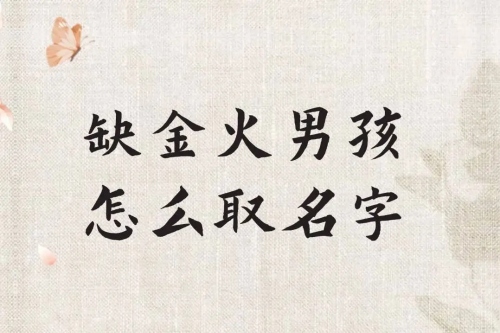 缺金火男孩
怎么取名字